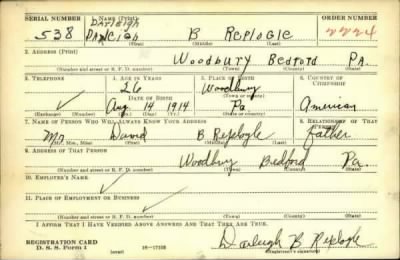 SERIAL NUMBER 1. NAME (Print) ORDER NUMBER
DARLEIGH
538 B REPLOGLE 2224
(First) (Middle) (Last)
2. ADDRESS (Print)
Woodbury Bedford PA.
(Number and street or R. F. D. number) (Town) (County) (State)
3. TELEPHONE 4. AGE IN YEARS 5. PLACE OF BIRTH 6. COUNTRY OF CITIZENSHIP
26 Woodbury
DATE OF BIRTH (Town or county)
Aug 14 1914 Pa American
(Exchange) (Number) (Mo.) (Day) (Yr.) (State or country)
7. NAME OF PERSON WHO WILL ALWAYS KNOW YOUR ADDRESS 8. RELATIONSHIP OF THAT PERSON
Mr David B Replogle Father
(Mr., Mrs., Miss) (First) (Middle) (Last)
9. ADDRESS OF THAT PERSON
Woodbury Bedford Pa.
(Number and street or R. F. D. number) (Town) (County) (State)
10. EMPLOYER'S NAME
11. PLACE OF EMPLOYMENT OR BUSINESS
(Number and street or R. F. D. number) (Town) (County) (State)
I AFFIRM THAT I HAVE VERIFIED ABOVE ANSWERS AND THAT THEY ARE TRUE.
REGISTRATION CARD
D. S. S. Form 1 (over) 16—17105
Darleigh B Replogle
(Registrant's signature)